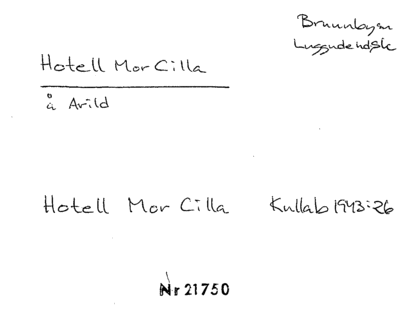 Brunnbysn
Luggudendsk
Hotell Mor Cilla
å Arild
Hotell Mor Cilla Kullab 1943:26
Nr 21750